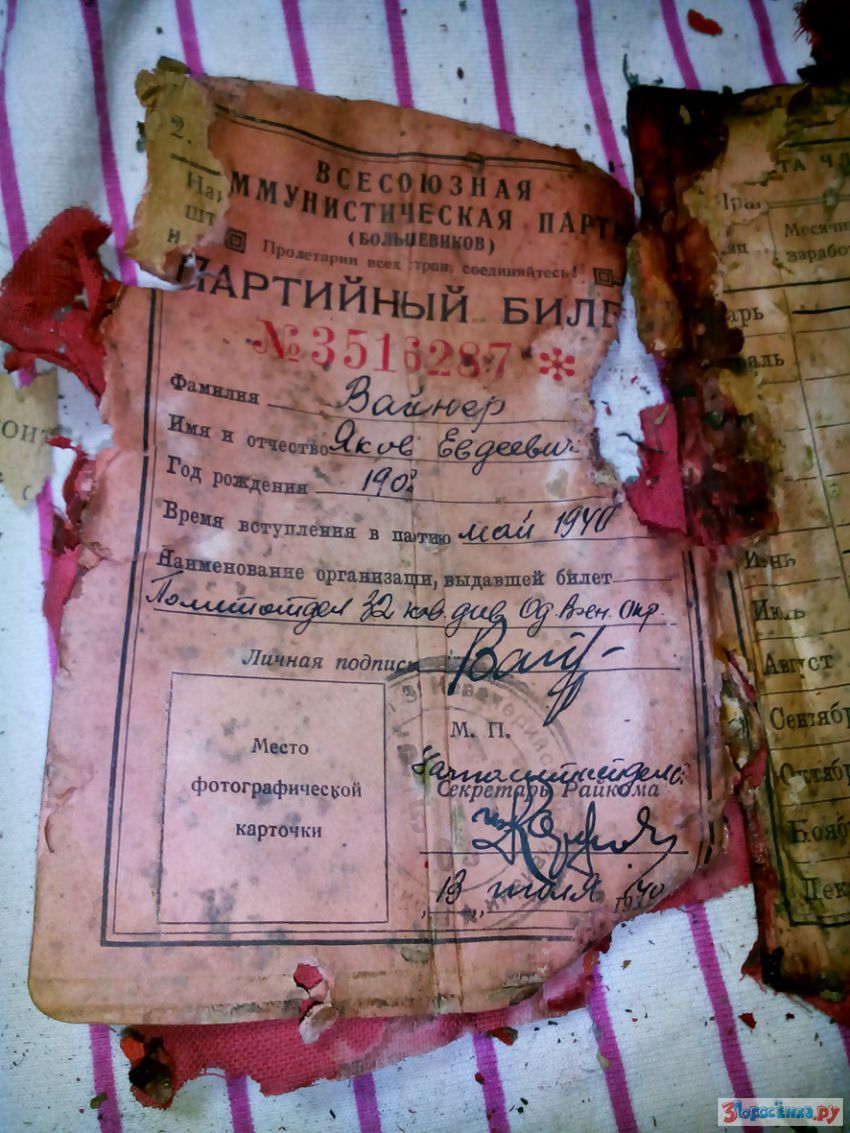 2.
На
шт
и
ВСЕСОЮЗНАЯ
ММУНИСТИЧЕСКАЯ ПАРТИ
(БОЛЬШЕВИКОВ)
Пролетарии всех стран, соединяйтесь!
ПАРТИЙНЫЙ БИЛЕ
№3516287 *
Фамилия Вайнер
Имя и отчество Яков Евдеевич
Год рождения 1908
Время вступления в партию май 1940
Наименование организации, выдавшей билет
Политотдел 32 кав. див. Од. Воен. Окр.
Личная подпись
М. П.
Место
фотографической
карточки
Начполитотдела
Секретарь Райкома
"13" июля 1940
ои
ТА ЧЛ
Месячн
заработ
арь
аль
Июнь
Июль
Август
Сентябр
Октябр
Ноябр
Дека
3Поросёнка.ру